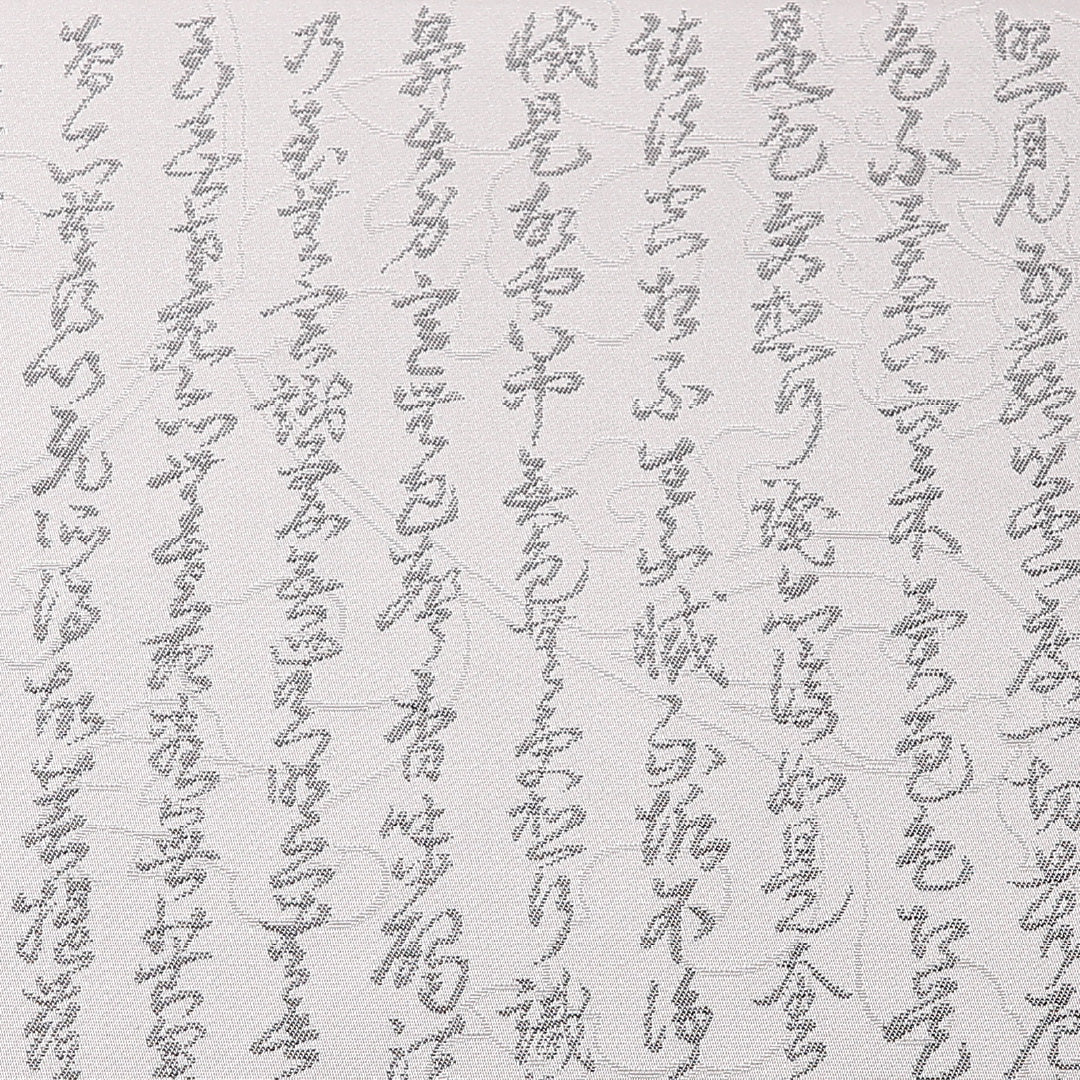 照見五蘊皆空度一切苦厄
色不異空空不異色色即是
是色受想行識亦復如是舍
諸法空相不生不滅不垢不淨
減是故空中無色無受想行識
鼻舌身意無色聲香味觸法
乃至無意識界無無明亦無
至無老死亦無老死盡無苦集
智亦無得以無所得故菩提薩